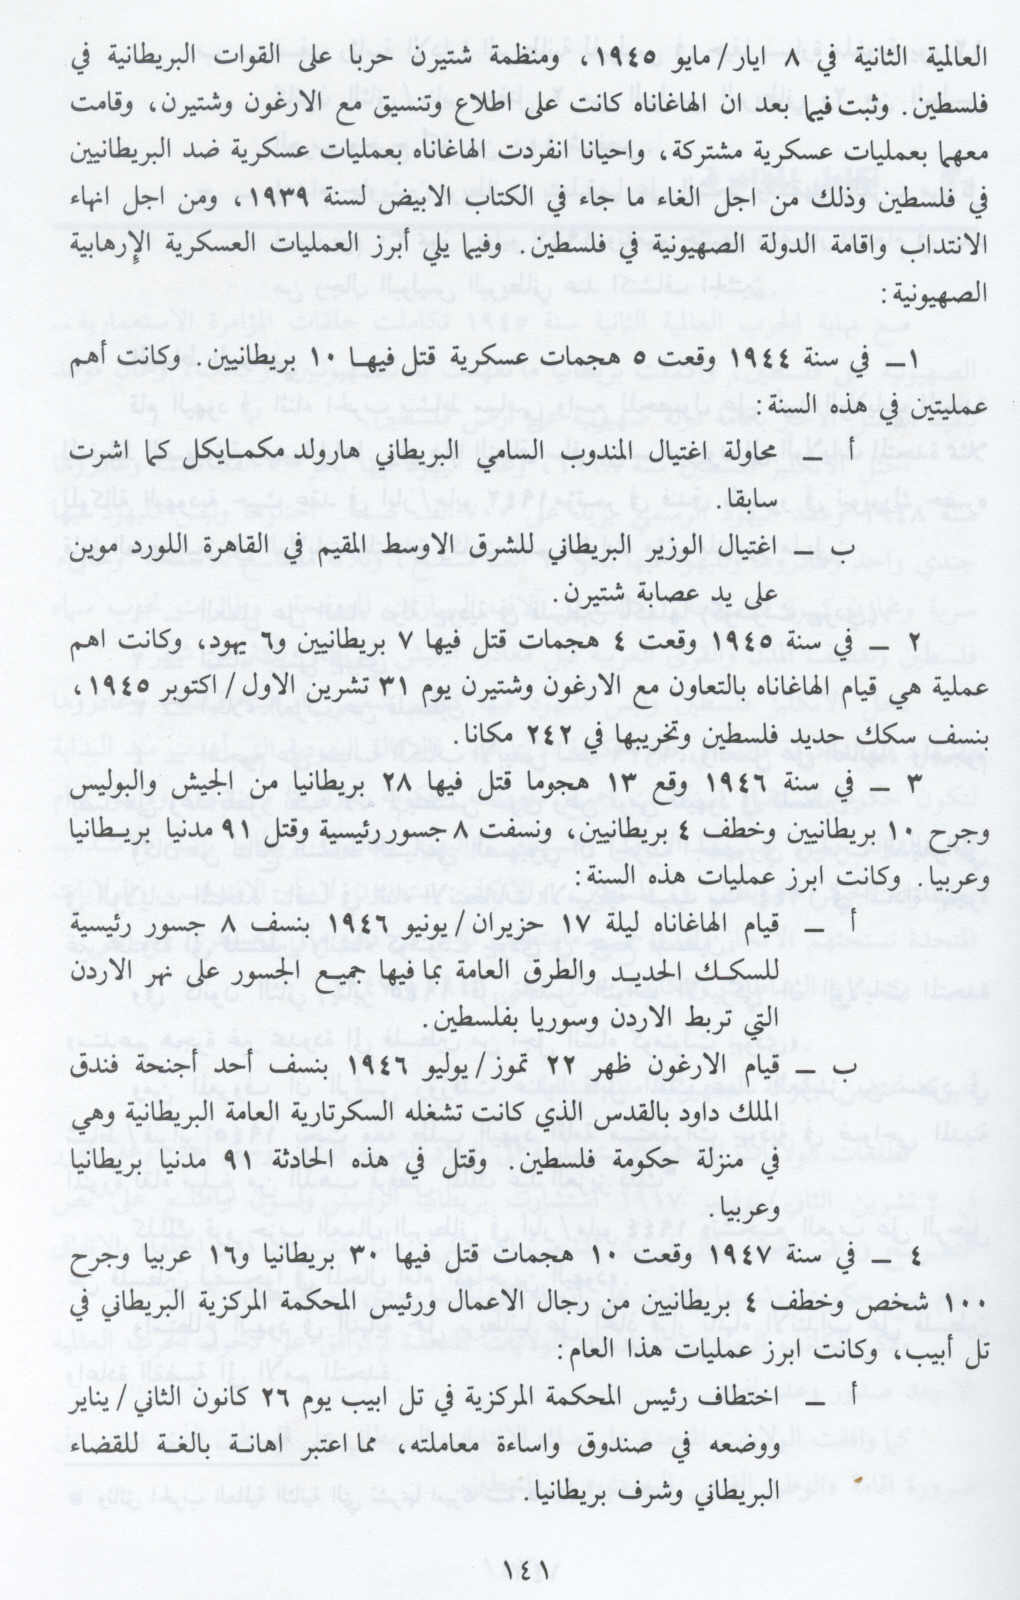 العالمية الثانية في ٨ ايار/مايو ١٩٤٥، ومنظمة شتيرن حربا على القوات البريطانية في
فلسطين. وثبت فيما بعد ان الهاغاناه كانت على اطلاع وتنسيق مع الارغون وشتيرن، وقامت
معهما بعمليات عسكرية مشتركة، واحيانا انفردت الهاغاناه بعمليات عسكرية ضد البريطانيين
في فلسطين وذلك من اجل الغاء ما جاء في الكتاب الابيض لسنة ١٩٣٩، ومن اجل انهاء
الانتداب واقامة الدولة الصهيونية في فلسطين. وفيما يلي أبرز العمليات العسكرية الإرهابية
الصهيونية:
١ــ في سنة ١٩٤٤ وقعت ٥ هجمات عسكرية قتل فيهـا ١٠ بريطانيين. وكانت أهم
عمليتين في هذه السنة:
أ ــ محاولة اغتيال المندوب السامي البريطاني هارولد مكمـايكل كما اشرت
سابقا.
ب ــ اغتيال الوزير البريطاني للشرق الاوسط المقيم في القاهرة اللورد موين
على يد عصابة شتيرن.
٢ ــ في سنة ١٩٤٥ وقعت ٤ هجمات قتل فيها ٧ بريطانيين و٦ يهود، وكانت اهم
عملية هي قيام الهاغاناه بالتعاون مع الارغون وشتيرن يوم ٣١ تشرين الاول/اكتوبر ١٩٤٥،
بنسف سكك حديد فلسطين وتخريبها في ٢٤٢ مكانا.
٣ ــ في سنة ١٩٤٦ وقع ١٣ هجوما قتل فيها ٢٨ بريطانيا من الجيش والبوليس
وجرح ١٠ بريطانيين وخطف ٤ بريطانيين، ونسفت ٨ جسور رئيسية وقتل ٩١ مدنيا بريـطانيا
وعربيا. وكانت ابرز عمليات هذه السنة:
أ ــ قيام الهاغاناه ليلة ١٧ حزيران/يونيو ١٩٤٦ بنسف ٨ جسور رئيسية
للسكـك الحديـد والطرق العامة بما فيها جميـع الجسور على نهر الاردن
التي تربط الاردن وسوريا بفلسطين.
ب ــ قيام الارغون ظهر ٢٢ تموز/يوليو ١٩٤٦ بنسف أحد أجنحة فندق
الملك داود بالقدس الذي كانت تشغله السكرتارية العامة البريطانية وهي
في منزلة حكومة فلسطين. وقتل في هذه الحادثة ٩١ مدنيا بريطانيا
وعربيا.
٤ ــ في سنة ١٩٤٧ وقعت ١٠ هجمات قتل فيها ٣٠ بريطانيا و١٦ عربيا وجرح
١٠٠ شخص وخطف ٤ بريطانيين من رجال الاعمال ورئيس المحكمة المركزية البريطاني في
تل أبيب، وكانت ابرز عمليات هذا العام:
أ ــ اختطاف رئيس المحكمة المركزية في تل ابيب يوم ٢٦ كانون الثاني/يناير
ووضعه في صندوق واساءة معاملته، مما اعتبر اهانـة بالغـة للقضاء
البريطاني وشرف بريطانيا.
١٤١